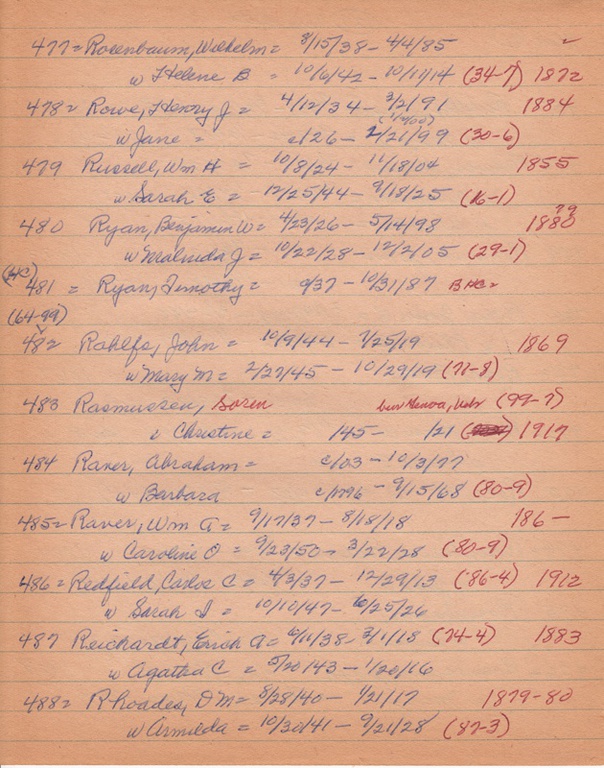 477 = Rosenbaum, Wilhelm = 3/15/38 - 4/4/85
w Helene B = 10/6/42 - 10/11/14 (34-7) 1872
478 = Rowe, Henry J = 4/12/34 - 3/2/91 1884
w Jane = c/26 - 2/21/99 (30-6)
479 Russell, Wm H = 10/8/24 - 11/18/04 1855
w Sarah E = 12/25/44 - 9/18/25 (16-1)
79
480 Ryan, Benjamin W = 4/23/26 - 5/14/98 1880
w Malinda J = 10/22/28 - 12/2/05 (29-1)
481 = Ryan, Timothy = c/37 - 10/31/87 BHC=
(64-99)
482 Rahlfs, John = 10/9/44 - 7/25/19 1869
w Mary M = 2/27/45 - 10/29/19 (71-8)
483 Rasmussen, Soren (99-7)
Christine = /45 - /21 1917
484 Raver, Abraham = c/03 - 10/3/77
w Barbara c/1796 - 9/15/68 (80-9)
485 = Raver, Wm A = 9/17/37 - 8/18/18 186-
w Caroline O = 9/23/50 - 3/22/28 (80-9)
486 = Redfield, Carlos C = 4/3/37 - 12/29/13 (86-4) 1912
w Sarah I = 10/10/47 - 6/25/26
487 Reichardt, Erich A = 6/11/38 - 3/1/18 (74-4) 1883
w Agatha C = 5/20/43 - 1/20/16
488 = Rhoades, D M = 8/28/40 - 1/21/17 1879-80
w Armilda = 10/30/41 - 9/21/28 (87-3)